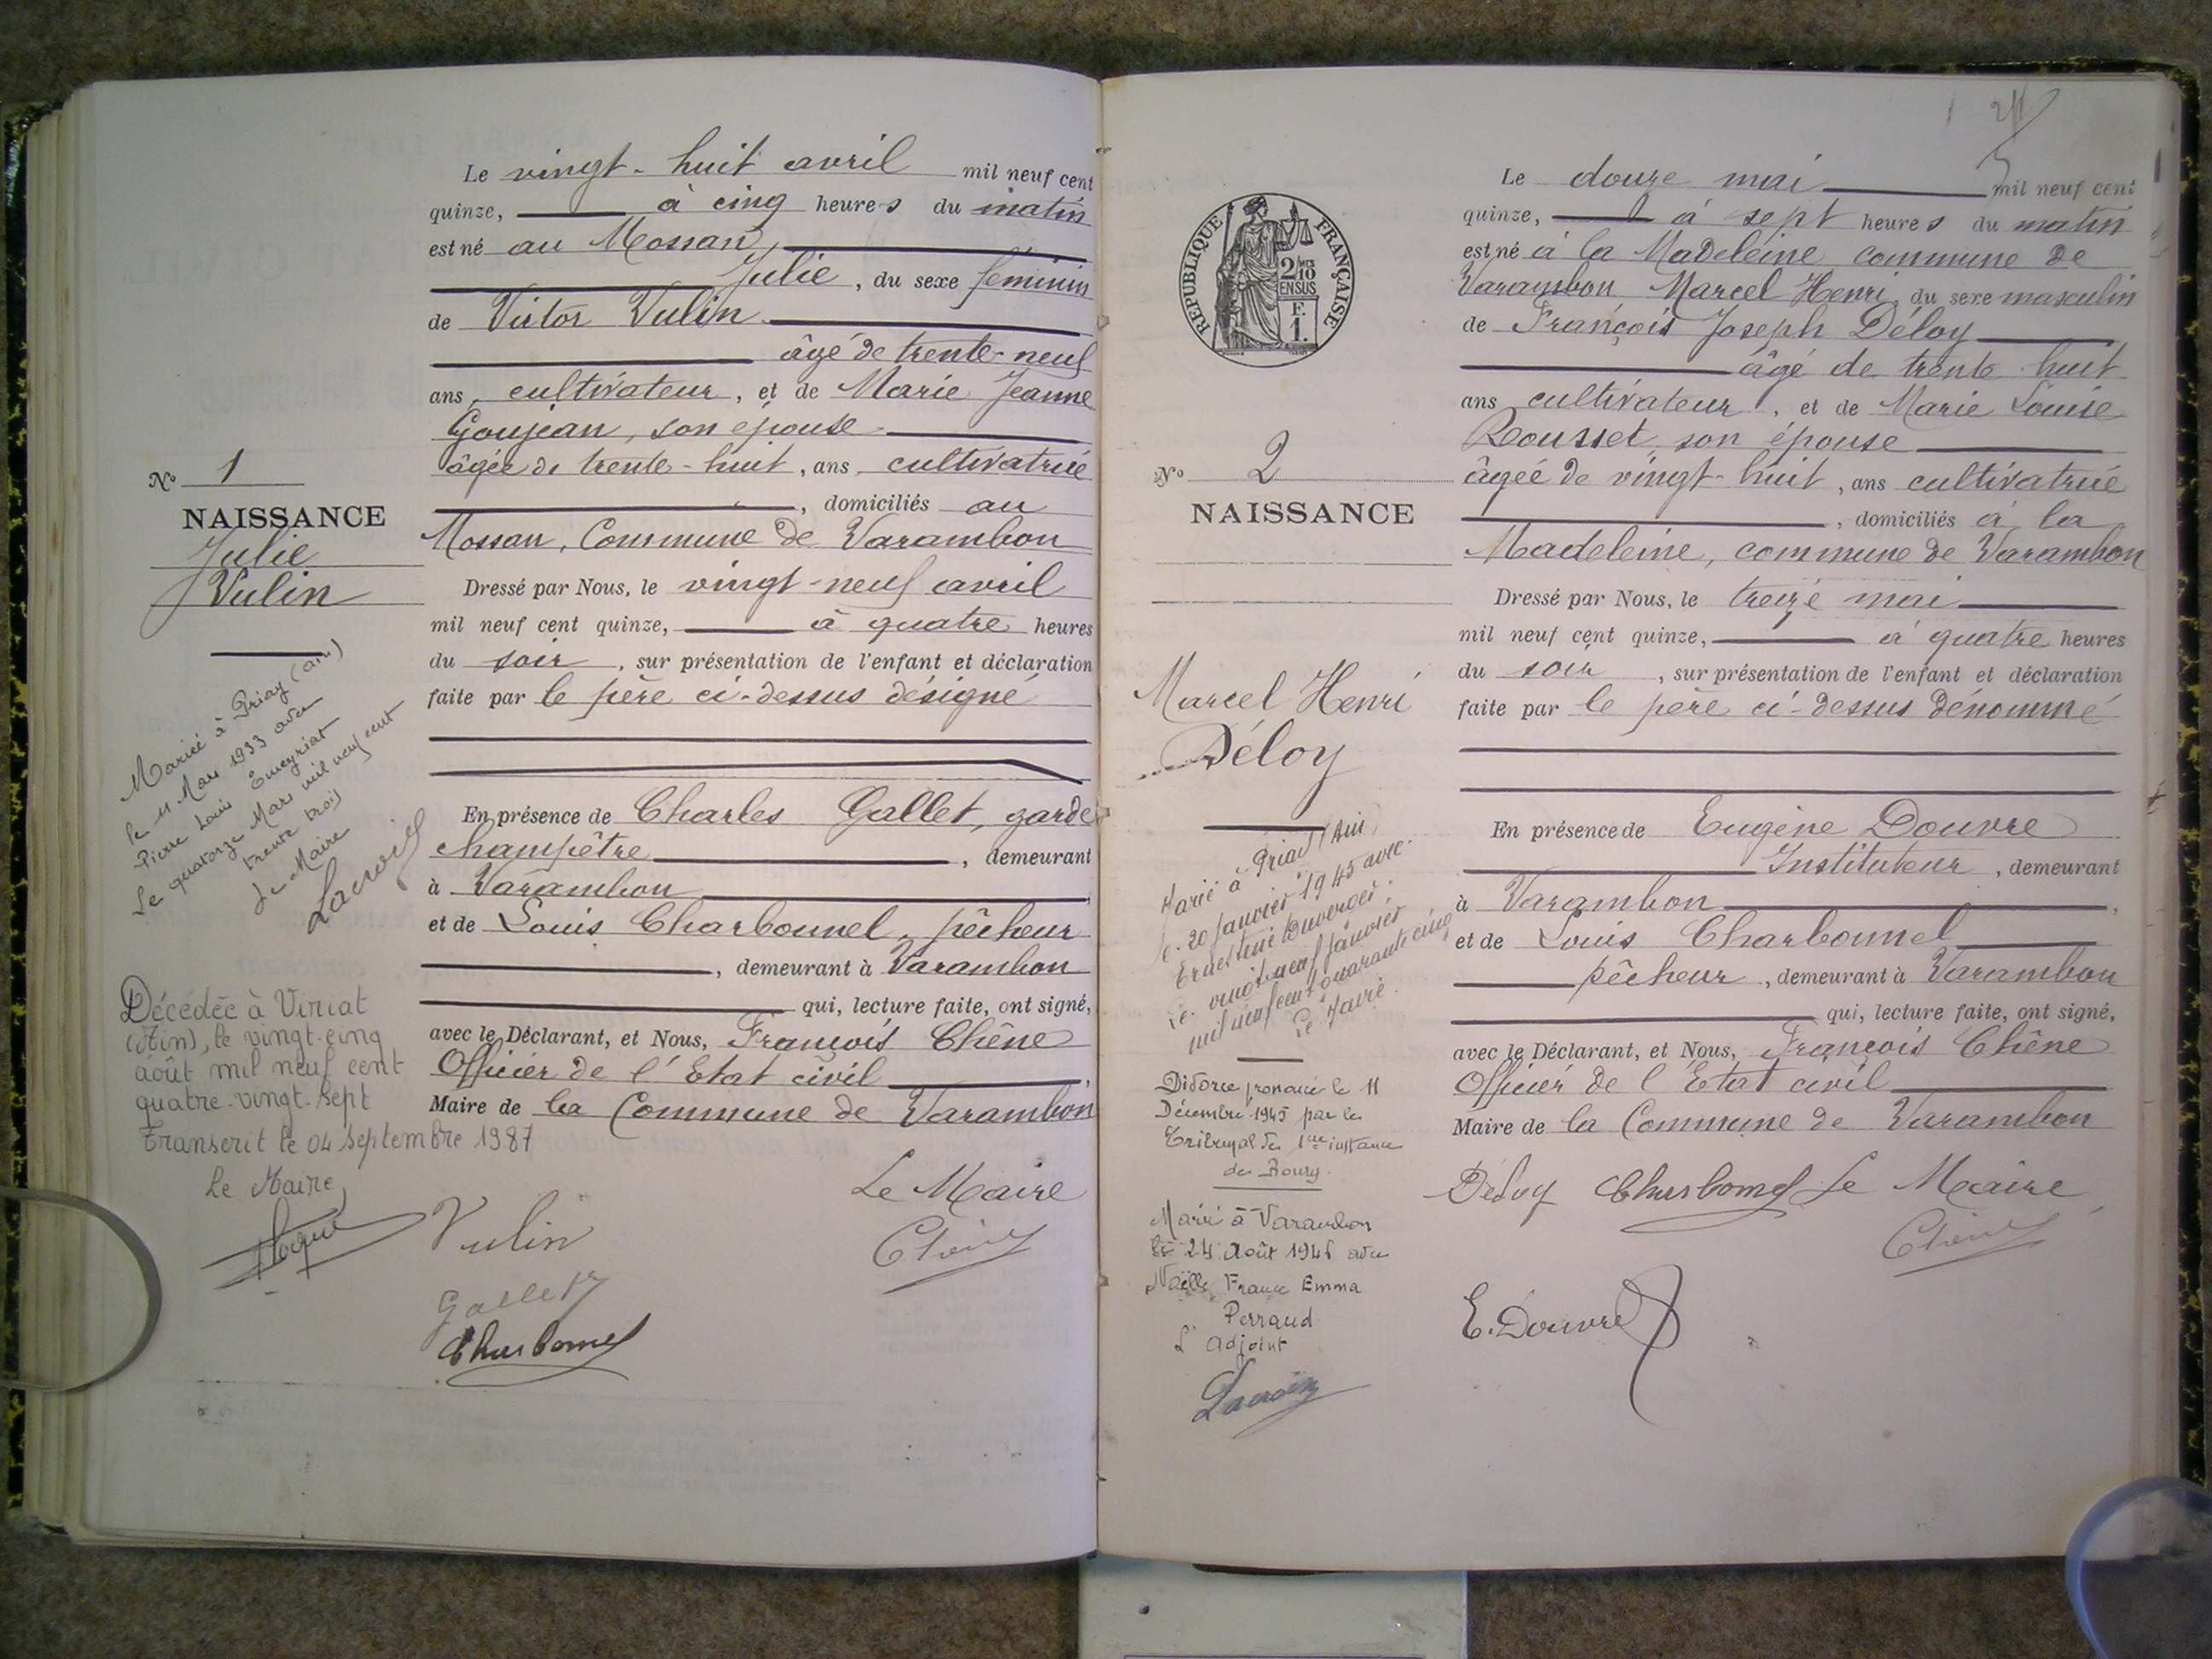 Le vingt-huit avril mil neuf cent
quinze, à cinq heures du matin
est né au Mossan,
Julie, du sexe féminin
de Victor Vulin
âgé de trente-neuf
ans, cultivateur, et de Marie Jeanne
Goujean, son épouse
âgée de trente-huit, ans cultivatrice
, domiciliés au
Mossan, Commune de Varambon
Dressé par Nous, le vingt-neuf avril
mil neuf cent quinze, à quatre heures
du soir, sur présentation de l'enfant et déclaration
faite par le père ci-dessus désigné
En présence de Charles Gallet, garde
champêtre, demeurant
à Varambon,
et de Louis Charbonnel, pêcheur
, demeurant à Varambon
qui, lecture faite, ont signé,
avec le Déclarant, et Nous, François Chêne
Officier de l'Etat civil,
Maire de la Commune de Varambon
Le Maire
Vulin
Gallet
Charbonnel
No 1
NAISSANCE
Julie
Vulin
Mariée à Priay (Ain)
le 11 Mars 1933 avec
Pierre Louis Emeyriat
Le quatorze Mars mil neuf cent
trente trois
Le Maire
Lacroix
Décédée à Viriat
(Ain), le vingt-cinq
août mil neuf cent
quatre-vingt-sept
Transcrit le 04 septembre 1987
Le Maire
RÉPUBLIQUE FRANÇAISE
2/10
EN SUS
F.
1.
No 2
NAISSANCE
Marcel Henri
Déloy
Marié à Priay (Ain)
le 20 janvier 1945 avec
Ernestine
Le vingt neuf janvier
mil neuf cent quarante cinq
Le Maire.
Divorce prononcé le 11
Décembre 1945 par le
Tribunal de 1ère instance
de Bourg.
Marié à Varambon
le 24 Août 1946 avec
Noëlle France Emma
Perraud
L'adjoint
Lacroix
Le douze mai mil neuf cent
quinze, à sept heures du matin
est né à la Madeleine commune de
Varambon Marcel Henri, du sexe masculin
de François Joseph Déloy
âgé de trente-huit
ans cultivateur, et de Marie Louise
Rousset, son épouse
âgée de vingt-huit, ans cultivatrice
, domiciliés à la
Madeleine, commune de Varambon
Dressé par Nous, le treize mai
mil neuf cent quinze, à quatre heures
du soir, sur présentation de l'enfant et déclaration
faite par le père ci-dessus dénommé
En présence de Eugène Douvre
Instituteur, demeurant
à Varambon,
et de Louis Charbonnel
pêcheur, demeurant à Varambon
qui, lecture faite, ont signé,
avec le Déclarant, et Nous, François Chêne
Officier de l'Etat civil
Maire de la Commune de Varambon
Déloy Charbonnel Le Maire
E. Douvre